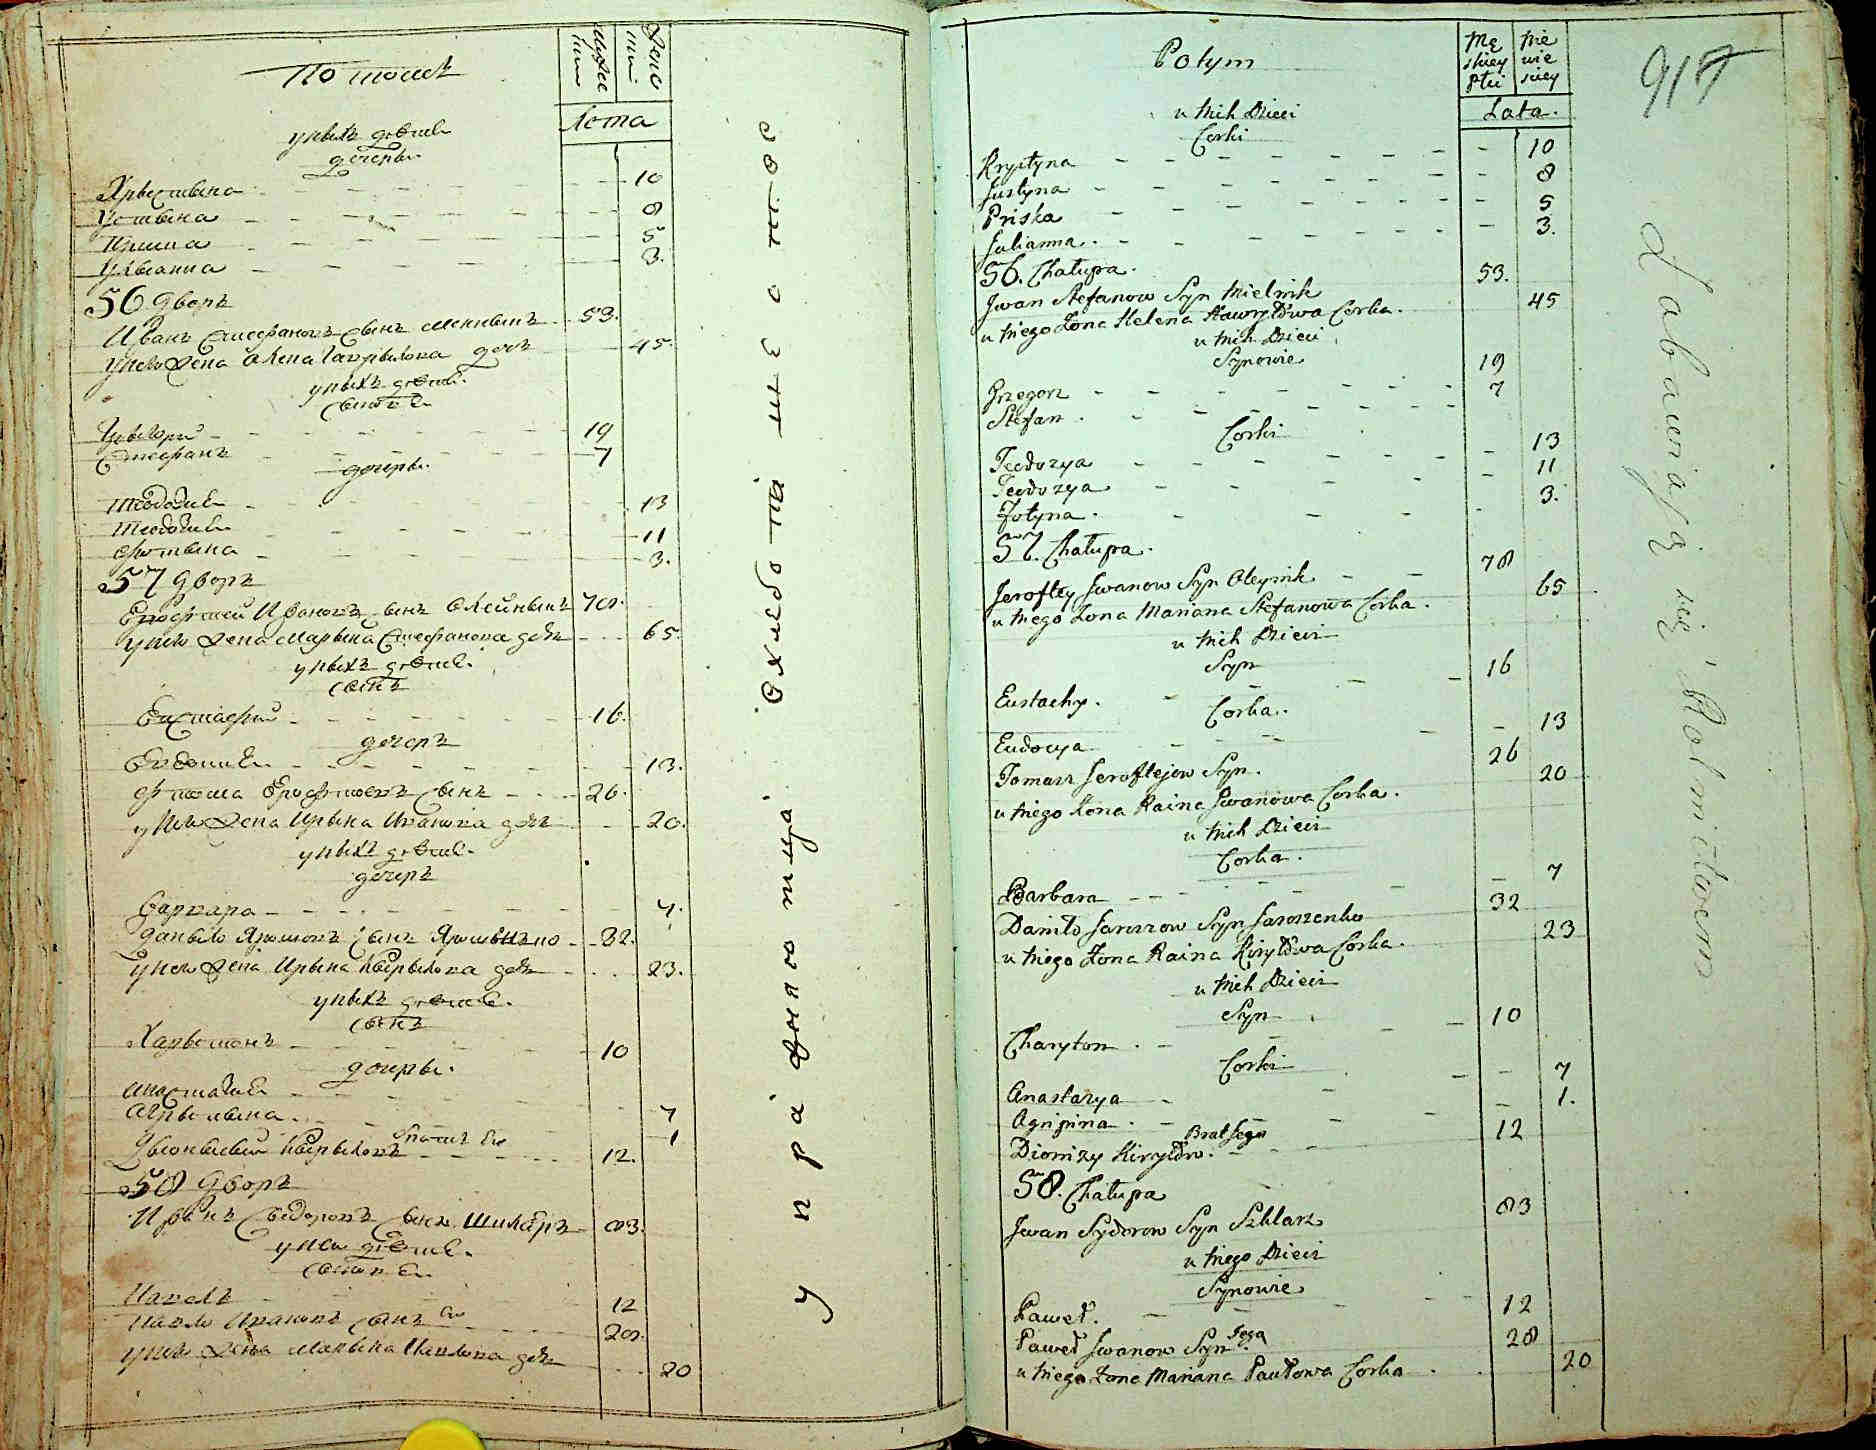 По томъ
Мужескии
Женскии
Лета
у нихъ дѣтей
дочери
Христина - 10
Устина - 8
Приска - 5
Улиана - 3.
56 Дворъ
Иванъ Стефановъ сынъ Мельникъ - 53.
у него жена Елена Гаврилова дочь - 45.
у нихъ дѣтей
сынове
Григори - 19
Стефанъ - 7
дочери
Теодозия - 13
Теодозия - 11
Фотина - 3.
57 Дворъ
Ерофтей Ивановъ сынъ Олейникъ 78.
у него жена Марина Стефанова дочь - 65.
у нихъ дѣтей
сынъ
Евстафий - 16.
дочерь
Евдокия - 13.
Фтома Ерофтеевъ сынъ - 26.
у него жена Ирина Иванова дочь - 20.
у нихъ дѣтей
дочерь
Варвара - 7.
Данило Ярошовъ сынъ Ярошенко - 32.
у него жена Ирина Кирилова дочь - 23.
у нихъ дѣтей
сынъ
Харитонъ - 10
дочери
Анастазия - 7
Агрипина - 1
братъ его
Дионизий Кириловъ - 12.
58 Дворъ
Иванъ Сидоровъ сынъ Шкляръ - 83.
у него дѣтей
сынове
Павелъ - 12
Павло Ивановъ сынъ его - 28.
у него жена Марина Павлова дочь - 20
Potym
Męskiey Płci
Niewieskiey
Lata.
u nich Dzieci
Corki
Krystyna - 10
Justyna - 8
Priska - 5
Julianna - 3.
56. Chałupa.
Jwan Stefanow Syn Mielnik 53.
u niego Żona Helena Hawryłowa Corka. 45
u nich Dzieci
Synowie
Grzegorz - 19
Stefan - 7
Corki
Teodozya - 13
Teodozya - 11
Fotyna - 3.
57. Chałupa.
Jeroftey Jwanow Syn Oleynik - 78
u niego Żona Mariana Stefanowa Corka. 65
u nich Dzieci
Syn
Eustachy. - 16
Corka.
Eudocya - 13
Tomasz Jeroftejow Syn. 26
u niego Żona Raina Jwanowa Corka. 20
u nich Dzieci
Corka.
Barbara - 7
Daniło Jaroszow Syn Jaroszenko 32
u niego Żona Raina Kiryłowa Corka. 23
u nich Dzieci
Syn
Charyton. - 10
Corki
Anastazya - 7
Agripina. - 1.
Brat Jego
Dionizy Kiryłow. - 12
58. Chałupa
Jwan Sydorow Syn Szklarz 83
u niego Dzieci
Synowie
Paweł. - 12
Paweł Jwanow Syn Jego 28
u niego Żona Mariana Pawłowa Corka. 20
917